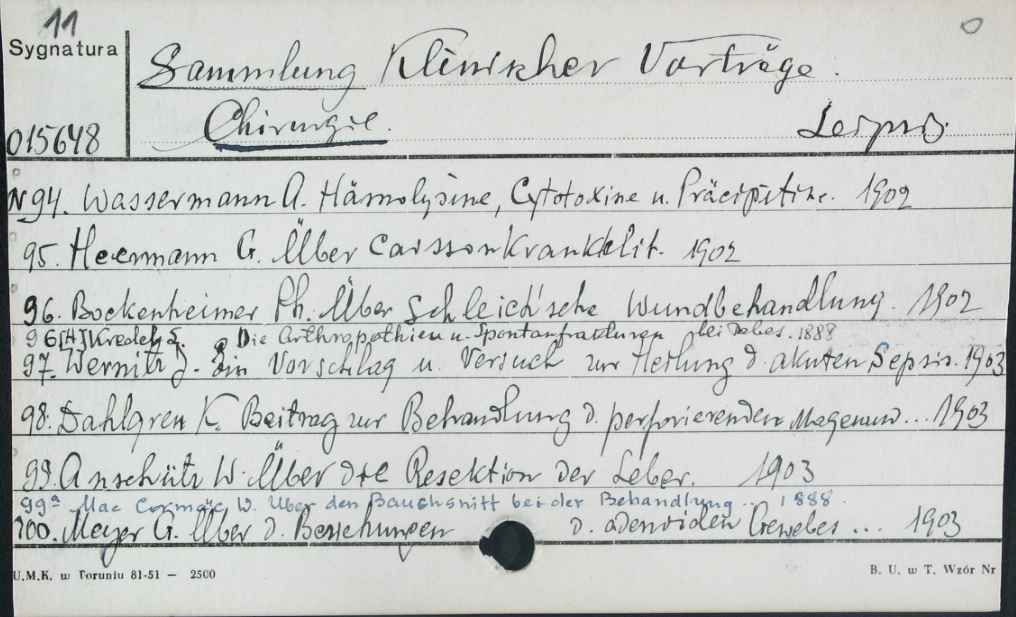 11
Sygnatura
Sammlung Klinischer Vorträge.
Chirurgie. Leipzig.
015648
N 94. Wassermann A. Hämolysine, Cytotoxine u. Präcipitine. 1902
95. Heermann G. Über Caissonkrankheit. 1902
96. Bockenheimer Ph. Über Schleich'sche Wundbehandlung. 1902
96[A] Kredel L. Die Arthropathien u. Spontanfrakturen bei Tabes. 1888
97. Wernitz J. Ein Vorschlag u. Versuch zur Heilung d. akuten Sepsis. 1903
98. Dahlgren K. Beitrag zur Behandlung d. perforierenden Magenund... 1903
99. Anschütz W. Über die Resektion der Leber. 1903
99a Mac Cormac W. Über den Bauchsnitt bei der Behandlung... 1888.
100. Meyer G. Über d. Beziehungen d. adenoiden Gewebes ... 1903
U.M.K. w Toruniu 81-51 — 2500
B. U. w T. Wzór Nr